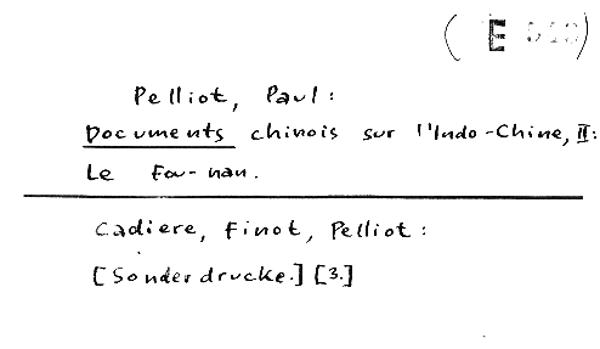 ( E )
Pelliot, Paul:
Documents chinois sur l'Indo-Chine, II:
Le Fou-nan.
Cadiere, Finot, Pelliot:
[Sonderdrucke.] [3.]